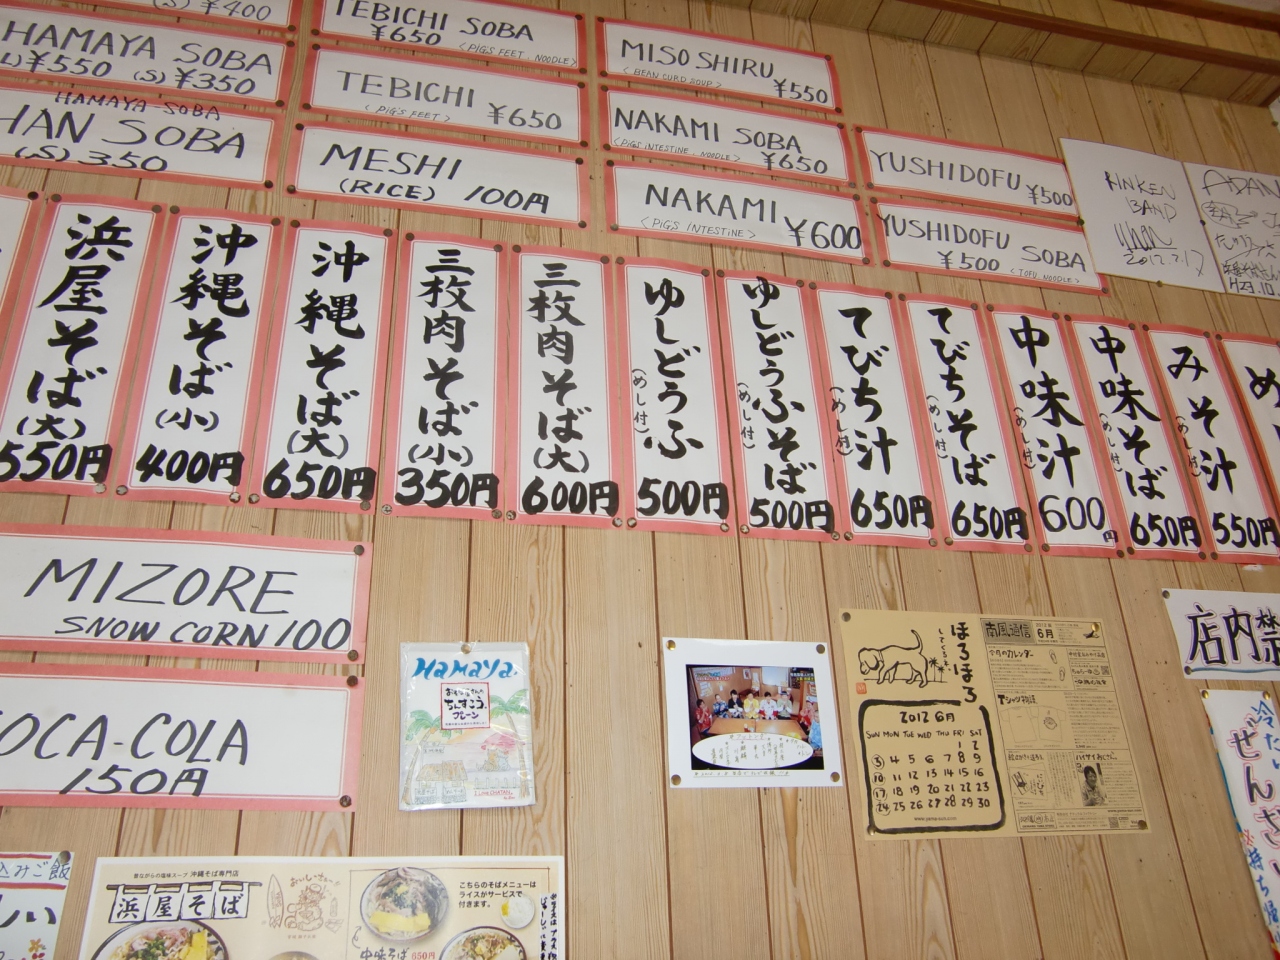 (S) ¥400
HAMAYA SOBA
¥550 (S) ¥350
HAMAYA-SOBA
HAN SOBA
(S) 350
TEBICHI SOBA
¥650 <PIGS FEET, NOODLE>
TEBICHI
<PIG'S FEET> ¥650
MESHI
(RICE) 100円
MISO SHIRU
<BEAN CURD SOUP> ¥550
NAKAMI SOBA
<PIGS INTESTINE, NOODLE> ¥650
NAKAMI
<PIGS INTESTINE> ¥600
YUSHIDOFU
¥500
YUSHIDOFU SOBA
¥500 <TOFU, NOODLE>
KINKEN
BAND
2012.2.17
ADAN
H23.10
浜屋そば
(大)
550円
沖縄そば
(小)
400円
沖縄そば
(大)
650円
三枚肉そば
(小)
350円
三枚肉そば
(大)
600円
ゆしどうふ
(めし付)
500円
ゆしどうふそば
(めし付)
500円
てびち汁
(めし付)
650円
てびちそば
(めし付)
650円
中味汁
(めし付)
600円
中味そば
(めし付)
650円
みそ汁
(めし付)
550円
め
MIZORE
SNOW CORN 100
COCA-COLA
150円
Hamaya
ちんすこう
プレーン
I LOVE CHATAN
ほろほろ
してくるぞ
2012 6月
SUN MON TUE WED THU FRI SAT
1 2
3 4 5 6 7 8 9
10 11 12 13 14 15 16
17 18 19 20 21 22 23
24 25 26 27 28 29 30
南風通信
2012年
6月
今月のカレンダー
Tシャツ物語
店内禁
冷たい
ぜんざい
込みご飯
昔ながらの塩味スープ 沖縄そば専門店
浜屋そば
こちらのそばメニューは
ライスがサービスで
付きます。
中味そば 650円